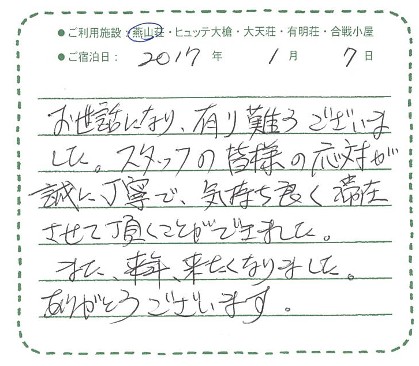 ●ご利用施設：燕山荘・ヒュッテ大槍・大天荘・有明荘・合戦小屋
●ご宿泊日： 2017 年 1 月 7 日
お世話になり、有り難うございま
した。スタッフの皆様の応対が
誠に丁寧で、気持ち良く滞在
させて頂くことができました。
また、来年、来たくなりました。
ありがとうございます。